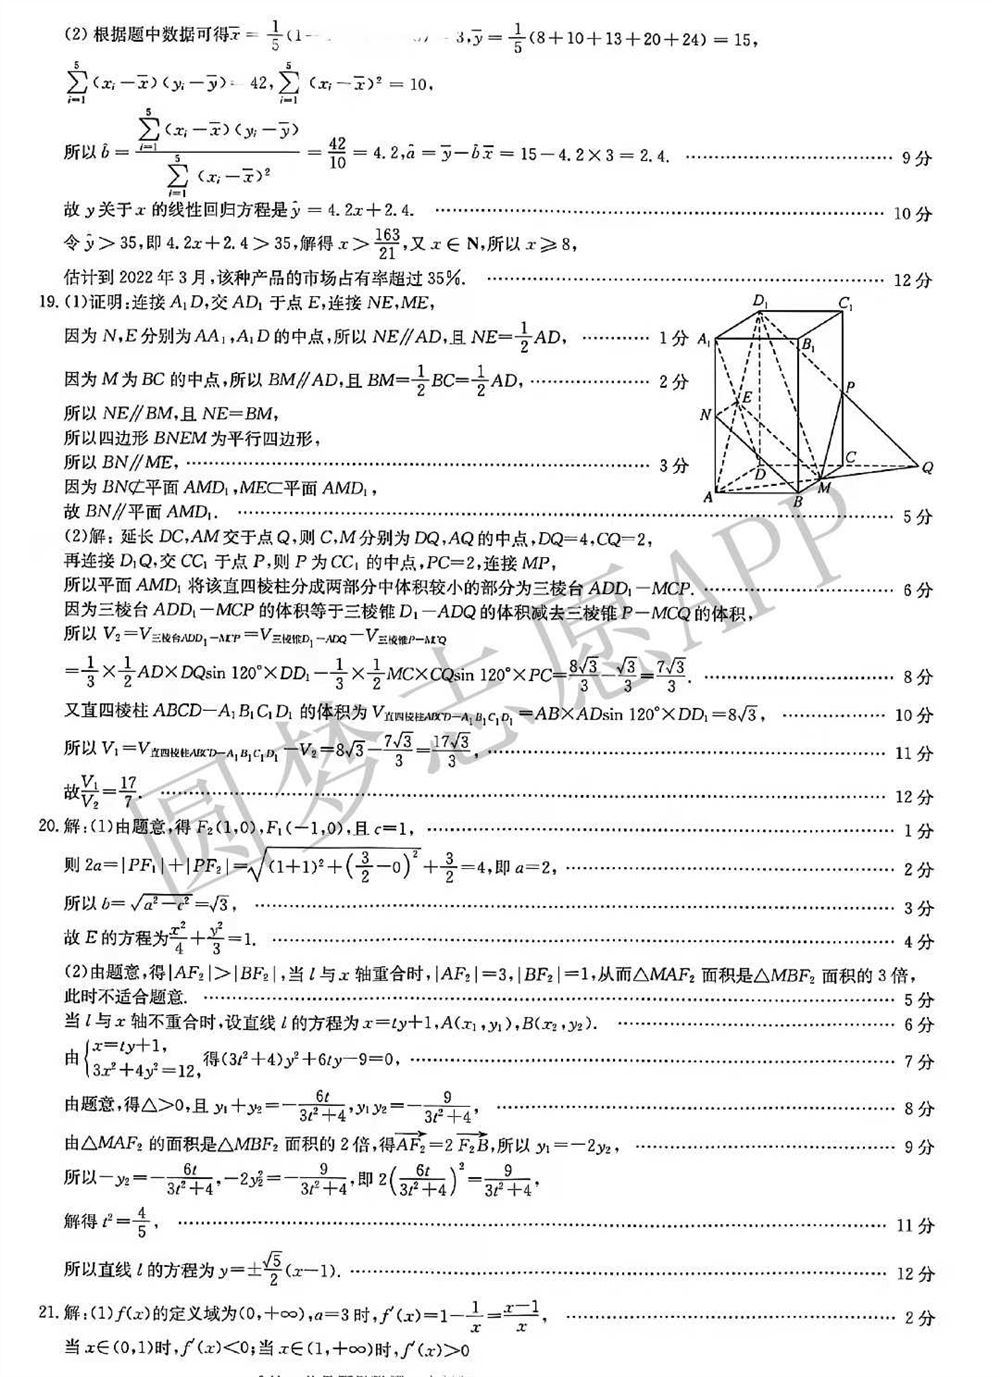 (2) 根据题中数据可得x̄ = 1/5(1 3, ȳ = 1/5(8+10+13+20+24) = 15,
∑_{i=1}^{5}(xᵢ-x̄)(yᵢ-ȳ) = 42, ∑_{i=1}^{5}(xᵢ-x̄)² = 10,
所以b̂ = ∑_{i=1}^{5}(xᵢ-x̄)(yᵢ-ȳ) / ∑_{i=1}^{5}(xᵢ-x̄)² = 42/10 = 4.2, â = ȳ-b̂x̄ = 15-4.2×3 = 2.4. …… 9分
故 y关于x 的线性回归方程是ŷ = 4.2x+2.4. …… 10分
令ŷ>35,即4.2x+2.4>35,解得x>163/21,又x∈N,所以x⩾8,
估计到2022年3月,该种产品的市场占有率超过35%. …… 12分
19.(1)证明:连接A₁D,交AD₁于点E,连接NE,ME,
因为N,E分别为AA₁,A₁D的中点,所以NE∥AD,且NE=1/2AD, …… 1分
因为M为BC的中点,所以BM∥AD,且BM=1/2BC=1/2AD, …… 2分
所以NE∥BM,且NE=BM,
所以四边形BNEM为平行四边形,
所以BN∥ME, …… 3分
因为BN⊄平面AMD₁,ME⊂平面AMD₁,
故BN∥平面AMD₁. …… 5分
D₁ C₁
A₁ B₁
P
N E
D C Q
A B M
(2)解:延长DC,AM交于点Q,则C,M分别为DQ,AQ的中点,DQ=4,CQ=2,
再连接D₁Q,交CC₁于点P,则P为CC₁的中点,PC=2,连接MP,
所以平面AMD₁将该直四棱柱分成两部分中体积较小的部分为三棱台ADD₁-MCP. …… 6分
因为三棱台ADD₁-MCP的体积等于三棱锥D₁-ADQ的体积减去三棱锥P-MCQ的体积,
所以V₂=V三棱台ADD₁-MCP=V三棱锥D₁-ADQ-V三棱锥P-MCQ
=1/3×1/2AD×DQsin 120°×DD₁-1/3×1/2MC×CQsin 120°×PC=8√3/3-√3/3=7√3/3. …… 8分
又直四棱柱ABCD-A₁B₁C₁D₁的体积为V直四棱柱ABCD-A₁B₁C₁D₁=AB×ADsin 120°×DD₁=8√3, …… 10分
所以V₁=V直四棱柱ABCD-A₁B₁C₁D₁-V₂=8√3-7√3/3=17√3/3, …… 11分
故V₁/V₂=17/7. …… 12分
20.解:(1)由题意,得F₂(1,0),F₁(-1,0),且c=1, …… 1分
则2a=|PF₁|+|PF₂|=√((1+1)²+(3/2-0)²)+3/2=4,即a=2, …… 2分
所以b=√(a²-c²)=√3, …… 3分
故E的方程为x²/4+y²/3=1. …… 4分
(2)由题意,得|AF₂|>|BF₂|,当l与x轴重合时,|AF₂|=3,|BF₂|=1,从而△MAF₂面积是△MBF₂面积的3倍,
此时不适合题意. …… 5分
当l与x轴不重合时,设直线l的方程为x=ty+1,A(x₁,y₁),B(x₂,y₂). …… 6分
由{x=ty+1, 3x²+4y²=12, 得(3t²+4)y²+6ty-9=0, …… 7分
由题意,得△>0,且y₁+y₂=-6t/(3t²+4),y₁y₂=-9/(3t²+4), …… 8分
由△MAF₂的面积是△MBF₂面积的2倍,得AF₂→=2F₂B→,所以y₁=-2y₂, …… 9分
所以-y₂=-6t/(3t²+4),-2y₂²=-9/(3t²+4),即2(6t/(3t²+4))²=9/(3t²+4),
解得t²=4/5, …… 11分
所以直线l的方程为y=±√5/2(x-1). …… 12分
21.解:(1)f(x)的定义域为(0,+∞),a=3时,f′(x)=1-1/x=(x-1)/x, …… 2分
当x∈(0,1)时,f′(x)<0;当x∈(1,+∞)时,f′(x)>0
圆梦志愿APP